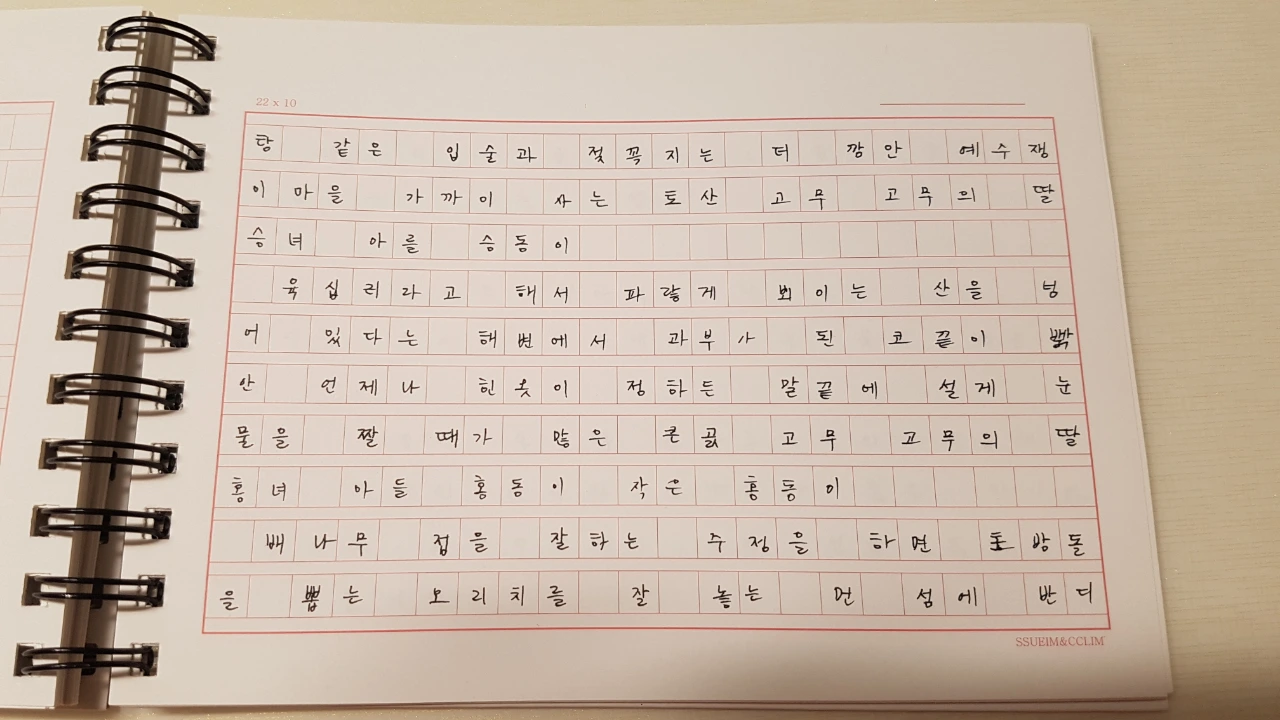 22 x 10
탕 같은 입술과 젖꼭지는 더 깜안 예수쟁
이 마을 가까이 사는 토산 고무 고무의 딸
승녀 아를 승동이
육십리라고 해서 파랗게 뵈이는 산을 넝
어 있다는 해변에서 과부가 된 코끝이 빩
안 언제나 힌옷이 정하든 말끝에 설게 눈
물을 짤 때가 많은 큰곬 고무 고무의 딸
홍녀 아들 홍동이 작은 홍동이
배나무 접을 잘하는 주정을 하면 토방돌
을 뽑는 오리치를 잘 놓는 먼 섬에 반디
SSUEIM&CCLIM